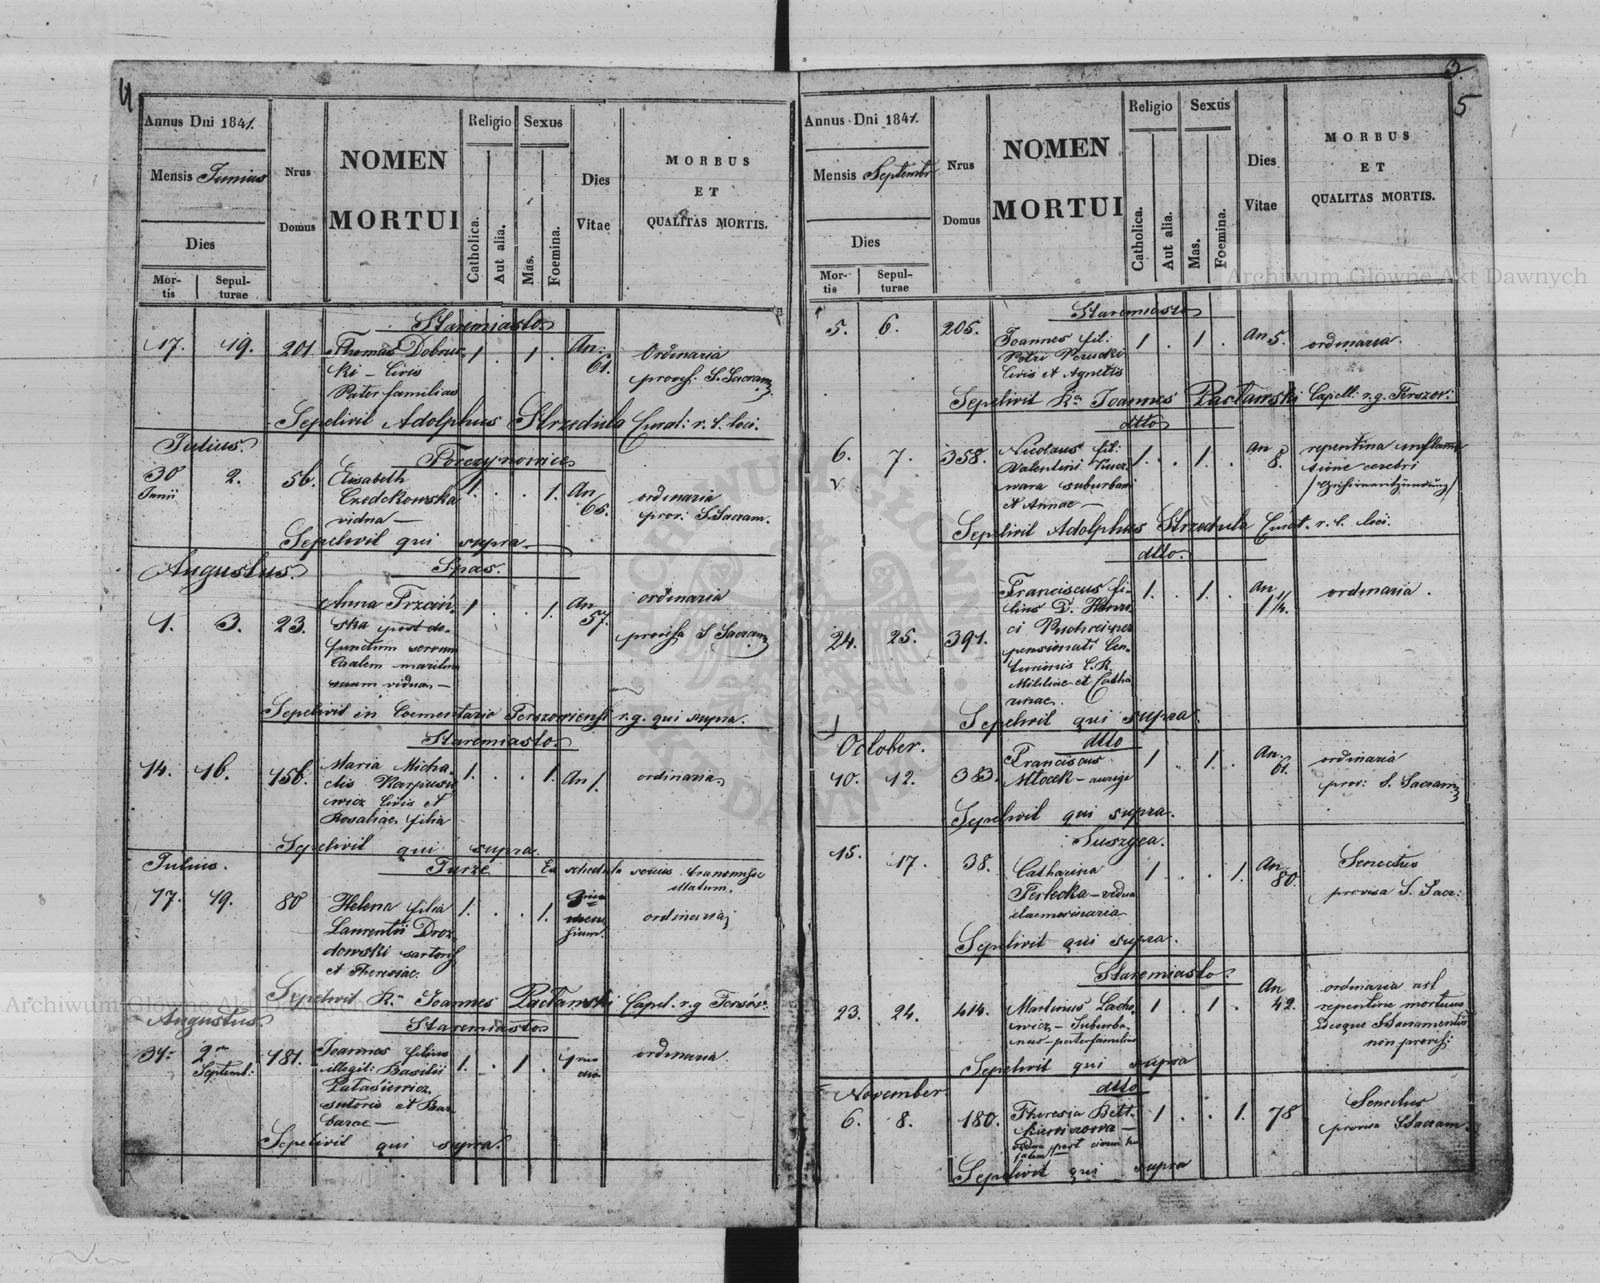 4
Annus Dni 1841.
Mensis Junius
Dies
Mor-
tis
Sepul-
turae
Nrus
Domus
NOMEN
MORTUI
Religio
Catholica.
Aut alia.
Sexus
Mas.
Foemina.
Dies
Vitae
MORBUS
ET
QUALITAS MORTIS.
Staremiasto
17. 19. 201 Thomas Dobrus 1 . 1 . An: Ordinaria
ki - Civis 61. provis. S. Sacram
Pater familias
Sepelivit Adolphus Strzedula Curat: r. l. loci.
Julius.
30 2. 56. Elisabeth 1. . . 1. An ordinaria
Junii
vidua — prov: S. Sacram.
Sepelivit qui supra —
Augustus.
Spas.
1. 3. 23. Anna 1 . . 1. An 57. ordinaria
ska post de- provisa S Sacram
functum
maritum
suum vidua —
Sepelivit in Coementario r. g. qui supra.
Staremiasto
14. 16. 156. Maria Micha- 1. . . 1. An 1. ordinaria
elis Karpusie
wicz Civis et
Rosaliae filia
Sepelivit qui supra.
Julius.
Turze Ex schedula
17. 19. 80 Helena filia 1. . . 1. ordinaria
Laurentii Droz-
dowski sartoris
et Theresiae
Sepelivit Rs Joannes Pactawski Capel. r. g
Augustus.
Staremiasto
31. 2. Septemb: 181. Joannes filius 1. . 1 . ordinaria.
illegit: Basilii
sutoris et Bar
barae —
Sepelivit qui supra.
5
Annus Dni 1841.
Mensis Septembr
Dies
Mor-
tis
Sepul-
turae
Nrus
Domus
NOMEN
MORTUI
Religio
Catholica.
Aut alia.
Sexus
Mas.
Foemina.
Dies
Vitae
MORBUS
ET
QUALITAS MORTIS.
Staremiasto
5. 6. 205. Joannes fil: 1 . 1 . An 5. ordinaria.
Petri
Civis et Agnetis
Sepelivit Rs Joannes Pactawski Capell: r. g.
dtto
6. 7. 358. Nicolaus fil: 1. . 1. . An 8. repentina inflama
Valentini tione cerebri
suburbani
et Annae —
Sepelivit Adolphus Strzedula Curat. r. l. loci.
dtto.
24. 25. 391. Franciscus fi- 1. . 1. . An 1 1/4. ordinaria.
lius D.
pensionati Cen-
turionis C. R.
Militiae et Catha
rinae.
Sepelivit qui supra.
October.
dtto
10. 12. 383. Franciscus 1 . 1 . An. 61. ordinaria
Młocek - aurige prov: S. Sacram
Sepelivit qui supra.
Suszyca.
15. 17. 38. Catharina 1 . . 1. An 80. Senectus
Perłecka - vidua provisa S. Sacr:
elaemosinaria
Sepelivit qui supra.
Staremiasto.
23. 24. 414. Martinus Lacho- 1 . 1 . An 42. ordinaria ast
wicz - Suburba- repentine mortuus
nus - paterfamilias Deoque SSacramentis
non provis:
Sepelivit qui supra
November
dtto
6. 8. 180. Theresia 1 . . 1. 78 Senectus
provisa SSacram
Sepelivit qui supra
Archiwum Główne Akt Dawnych
Archiwum Główne Akt Dawnych
ARCHIWUM GŁÓWNE AKT DAWNYCH